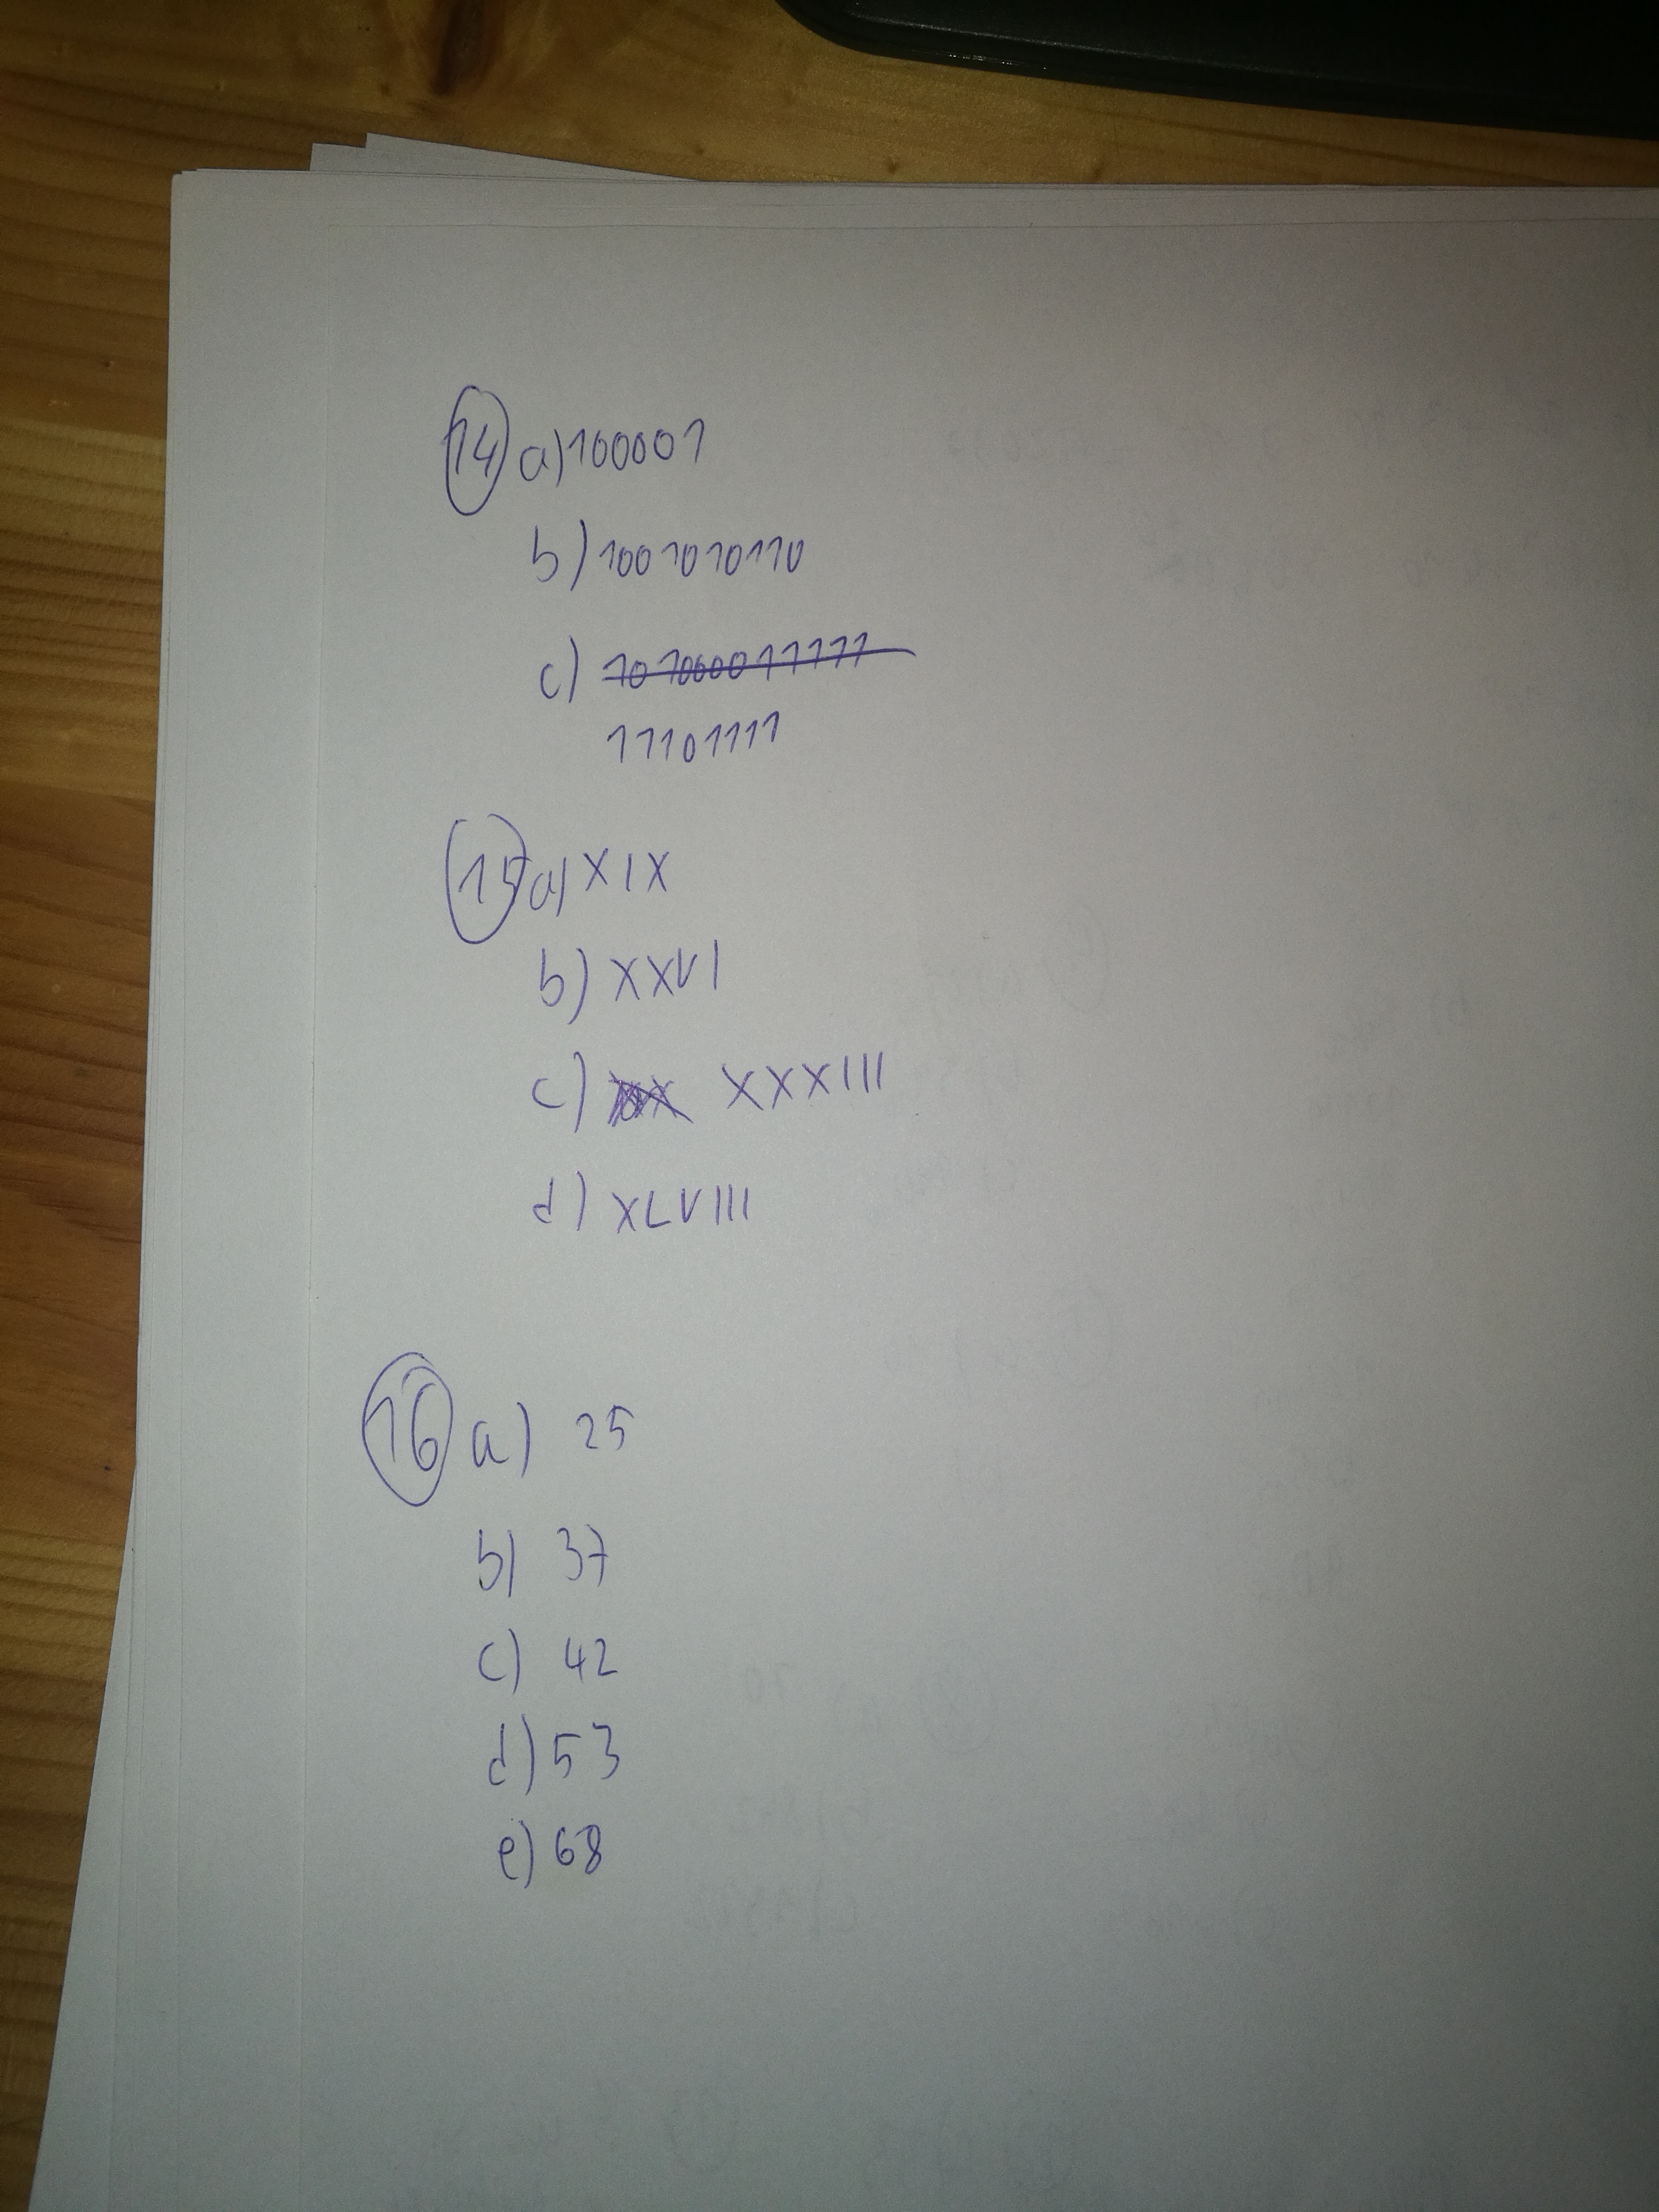 14 a) 100001
b) 1001010110
c) 101000011111
11101111
15 a) XIX
b) XXVI
c) XXXIII
d) XLVIII
16 a) 25
b) 37
c) 42
d) 53
e) 68